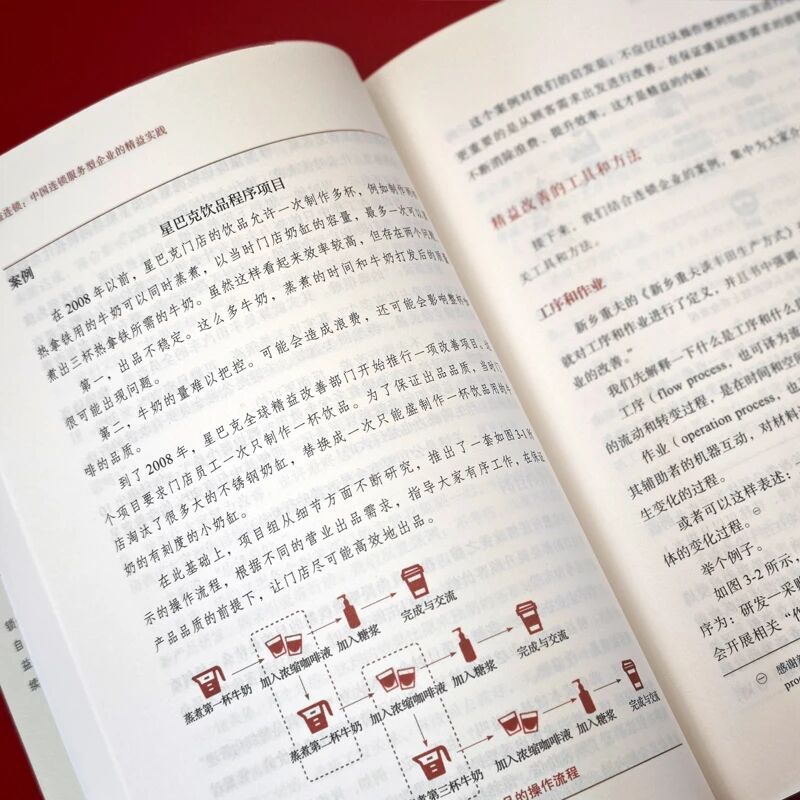 连锁：中国连锁服务型企业的精益实践
案例
星巴克饮品程序项目
在 2008 年以前，星巴克门店的饮品允许一次制作多杯，例如制作两
热拿铁用的牛奶可以同时蒸煮，以当时门店奶缸的容量，最多一次可以
煮出三杯热拿铁所需的牛奶。虽然这样看起来效率较高，但存在两个问题
第一，出品不稳定。这么多牛奶，蒸煮的时间和牛奶打发后的质
很可能出现问题。
第二，牛奶的量难以把控。可能会造成浪费，还可能会影响整杯
啡的品质。
到了 2008 年，星巴克全球精益改善部门开始推行一项改善项目。这
个项目要求门店员工一次只制作一杯饮品。为了保证出品品质，当时门
店淘汰了很多大的不锈钢奶缸，替换成一次只能盛制作一杯饮品用的牛
奶的有刻度的小奶缸。
在此基础上，项目组从细节方面不断研究，推出了一套如图 3-1 所
示的操作流程，根据不同的营业出品需求，指导大家有序工作，在保证
产品品质的前提下，让门店尽可能高效地出品。
蒸煮第一杯牛奶
加入浓缩咖啡液
加入糖浆
完成与交流
蒸煮第二杯牛奶
加入浓缩咖啡液
加入糖浆
完成与交流
蒸煮第三杯牛奶
加入浓缩咖啡液
加入糖浆
完成与交流
品的操作流程
这个案例对我们的启发是：不应仅仅从操作便利性出发进行
更重要的是从顾客需求出发进行改善，在保证满足顾客需求的前
不断消除浪费、提升效率，这才是精益的内涵！
精益改善的工具和方法
接下来，我们结合连锁企业的案例，集中为大家介
关工具和方法。
工序和作业
新乡重夫的《新乡重夫谈丰田生产方式》
就对工序和作业进行了定义，并且书中强调
业的改善。”
我们先解释一下什么是工序和什么是
工序（flow process，也可译为流
的流动和转变过程，是在时间和空间
作业（operation process，也
其辅助者的机器互动，对材料
生变化的过程。
或者可以这样表述：
体的变化过程。㊀
举个例子。
如图 3-2 所示，
序为：研发—采购
会开展相关“作
㊀ 感谢
proc